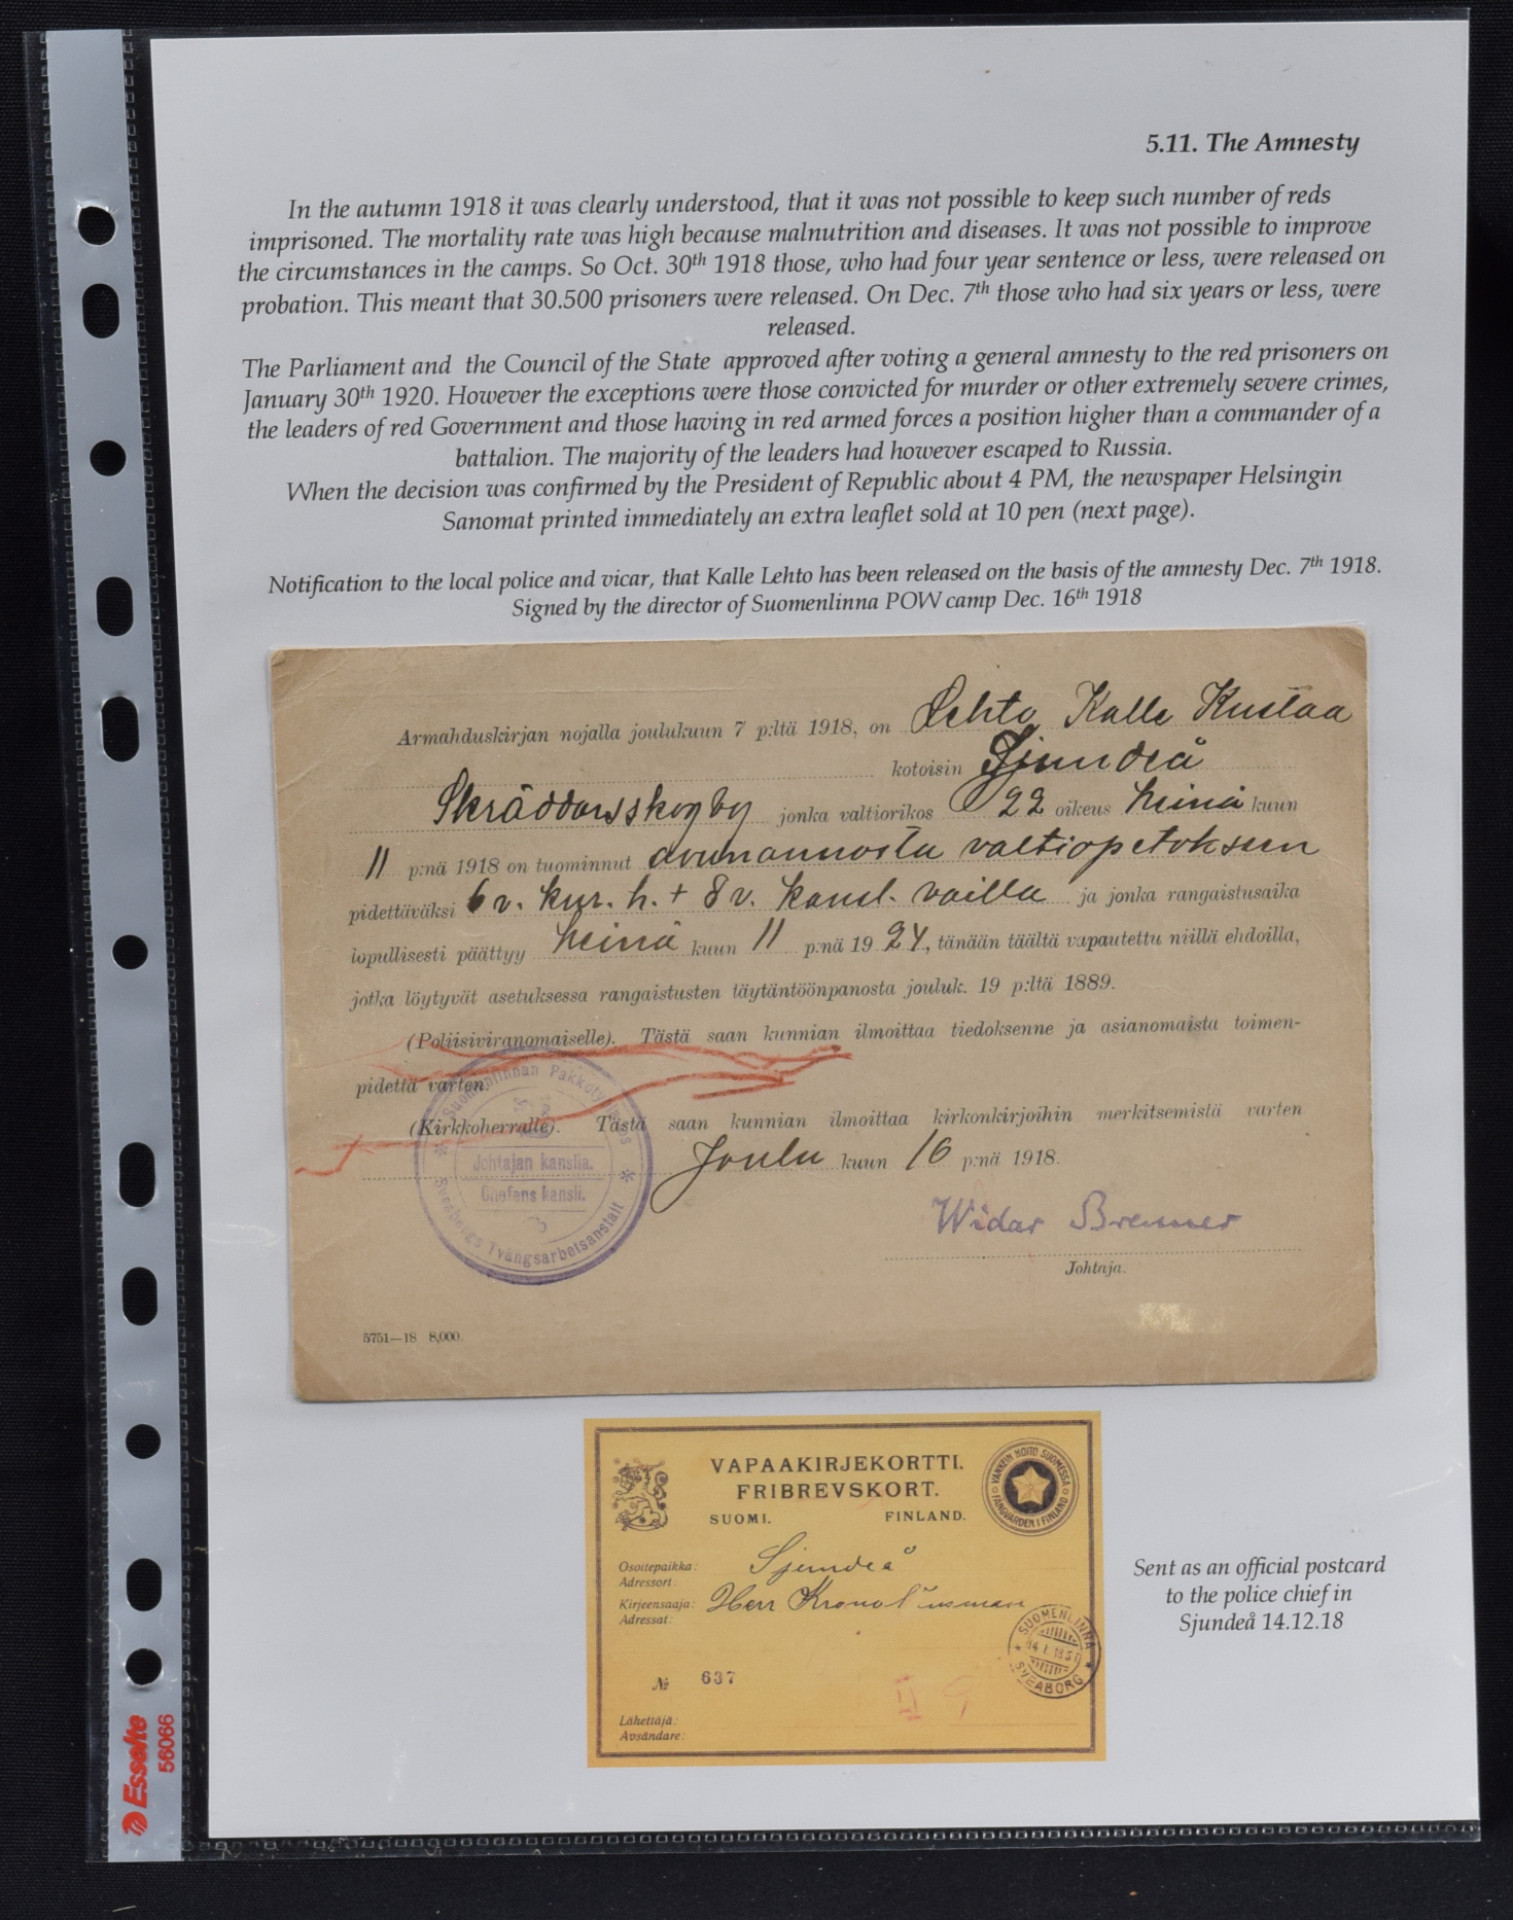 5.11. The Amnesty
In the autumn 1918 it was clearly understood, that it was not possible to keep such number of reds
imprisoned. The mortality rate was high because malnutrition and diseases. It was not possible to improve
the circumstances in the camps. So Oct. 30th 1918 those, who had four year sentence or less, were released on
probation. This meant that 30.500 prisoners were released. On Dec. 7th those who had six years or less, were
released.
The Parliament and the Council of the State approved after voting a general amnesty to the red prisoners on
January 30th 1920. However the exceptions were those convicted for murder or other extremely severe crimes,
the leaders of red Government and those having in red armed forces a position higher than a commander of a
battalion. The majority of the leaders had however escaped to Russia.
When the decision was confirmed by the President of Republic about 4 PM, the newspaper Helsingin
Sanomat printed immediately an extra leaflet sold at 10 pen (next page).
Notification to the local police and vicar, that Kalle Lehto has been released on the basis of the amnesty Dec. 7th 1918.
Signed by the director of Suomenlinna POW camp Dec. 16th 1918
Armahduskirjan nojalla joulukuun 7 p:ltä 1918, on Lehto Kalle Kustaa
kotoisin Sjundeå
Skräddarskogby jonka valtiorikos 22 oikeus heinä kuun
11 p:nä 1918 on tuominnut avunannosta valtiopetoksen
pidettäväksi 6 v. kur. h. + 8 v. kansl. vailla ja jonka rangaistusaika
lopullisesti päättyy heinä kuun 11 p:nä 1924, tänään täältä vapautettu niillä ehdoilla,
jotka löytyvät asetuksessa rangaistusten täytäntöönpanosta jouluk. 19 p:ltä 1889.
(Poliisiviranomaiselle). Tästä saan kunnian ilmoittaa tiedoksenne ja asianomaista toimen-
pidettä varten.
(Kirkkoherralle). Tästä saan kunnian ilmoittaa kirkonkirjoihin merkitsemistä varten
Joulu kuun 16 p:nä 1918.
Suomenlinnan Pakkotyölaitos
Johtajan kanslia.
Chefens kansli.
Sveaborgs Tvångsarbetsanstalt
Widar Bremer
Johtaja.
5751—18 8,000.
VAPAAKIRJEKORTTI.
FRIBREVSKORT.
SUOMI. FINLAND.
VANKEIN HOITO SUOMESSA
FÅNGVÅRDEN I FINLAND
Osoitepaikka: Sjundeå
Adressort:
Kirjeensaaja: Herr Kronolänsman
Adressat:
SUOMENLINNA
SVEABORG
№ 637
Lähettäjä:
Avsändare:
Sent as an official postcard
to the police chief in
Sjundeå 14.12.18
Esselte
56066